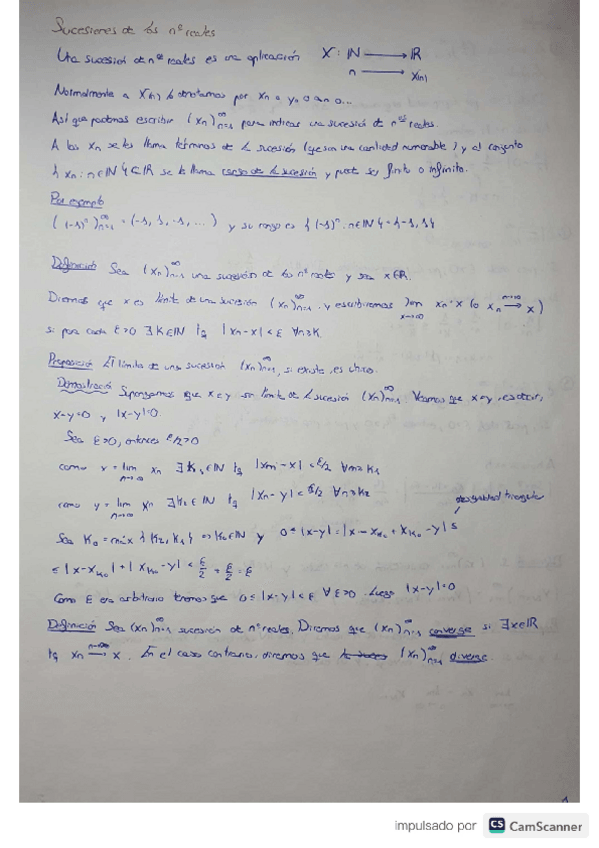 Sucesiones de los nº reales
Una sucesión de nºs reales es una aplicación X : ℕ ⟶ ℝ
n ⟶ X(n)
Normalmente a X(n) lo denotamos por xn o yn o an o...
Así que podemos escribir (xn)_{n=1}^∞ para indicar una sucesión de nºs reales.
A los xn se les llama términos de la sucesión (que son una cantidad numerable) y al conjunto
{xn : n∈ℕ} ⊂ ℝ se le llama de la sucesión y puede ser finito o infinito.
Por ejemplo
((-1)^n)_{n=1}^∞ = (-1, 1, -1, ...) y su rango es {(-1)^n : n∈ℕ} = {-1, 1}
Definición Sea (xn)_{n=1}^∞ una sucesión de los nº reales y sea x∈ℝ.
Diremos que x es límite de una sucesión (xn)_{n=1}^∞ y escribiremos lim_{n→∞} xn = x (o xn ⟶^{n→∞} x)
si para cada ε>0 ∃ K∈ℕ tq |xn - x| < ε ∀n≥K.
Proposición El límite de una sucesión (xn)_{n=1}^∞, si existe, es único.
Demostración Supongamos que x e y son límite de la sucesión (xn)_{n=1}^∞. Veamos que x=y, es decir,
x-y=0 y |x-y|=0.
Sea ε>0, entonces ε/2>0
como x = lim_{n→∞} xn ∃K1∈ℕ tq |xn - x| < ε/2 ∀n≥K1
como y = lim_{n→∞} xn ∃K2∈ℕ tq |xn - y| < ε/2 ∀n≥K2
desigualdad triangular
Sea K0 = máx {K2, K1} ⇒ K0∈ℕ y 0≤|x-y| = |x - x_{K0} + x_{K0} - y| ≤
≤ |x - x_{K0}| + |x_{K0} - y| < ε/2 + ε/2 = ε
Como ε era arbitrario tenemos que 0≤|x-y|<ε ∀ε>0. Luego |x-y|=0
Definición Sea (xn)_{n=1}^∞ sucesión de nº reales. Diremos que (xn)_{n=1}^∞ converge si ∃x∈ℝ
tq xn ⟶^{n→∞} x. En el caso contrario, diremos que (xn)_{n=1}^∞ diverge
impulsado por CS CamScanner